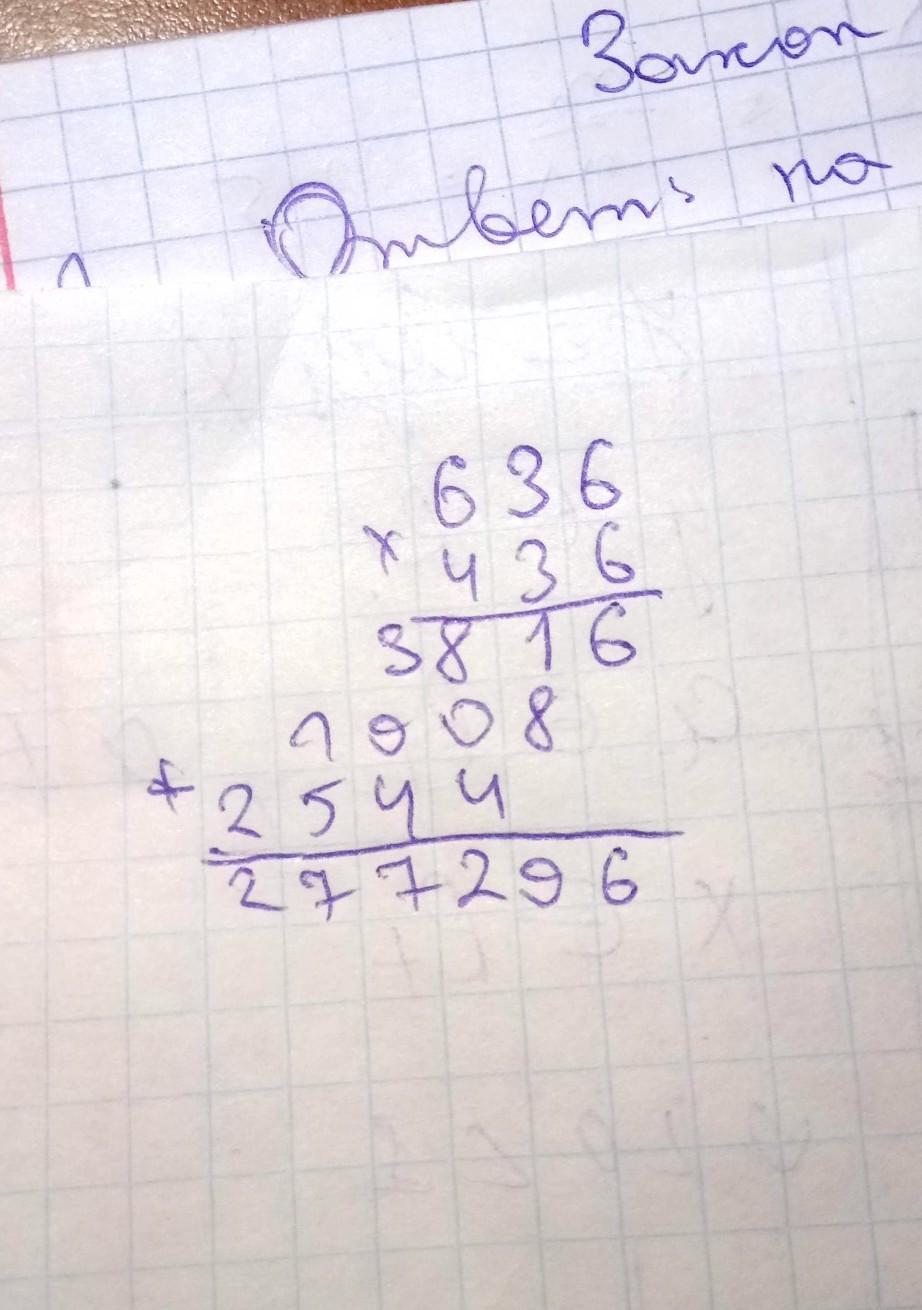 Закон
Ответ: на
636
× 436
3816
1908
+ 2544
277296